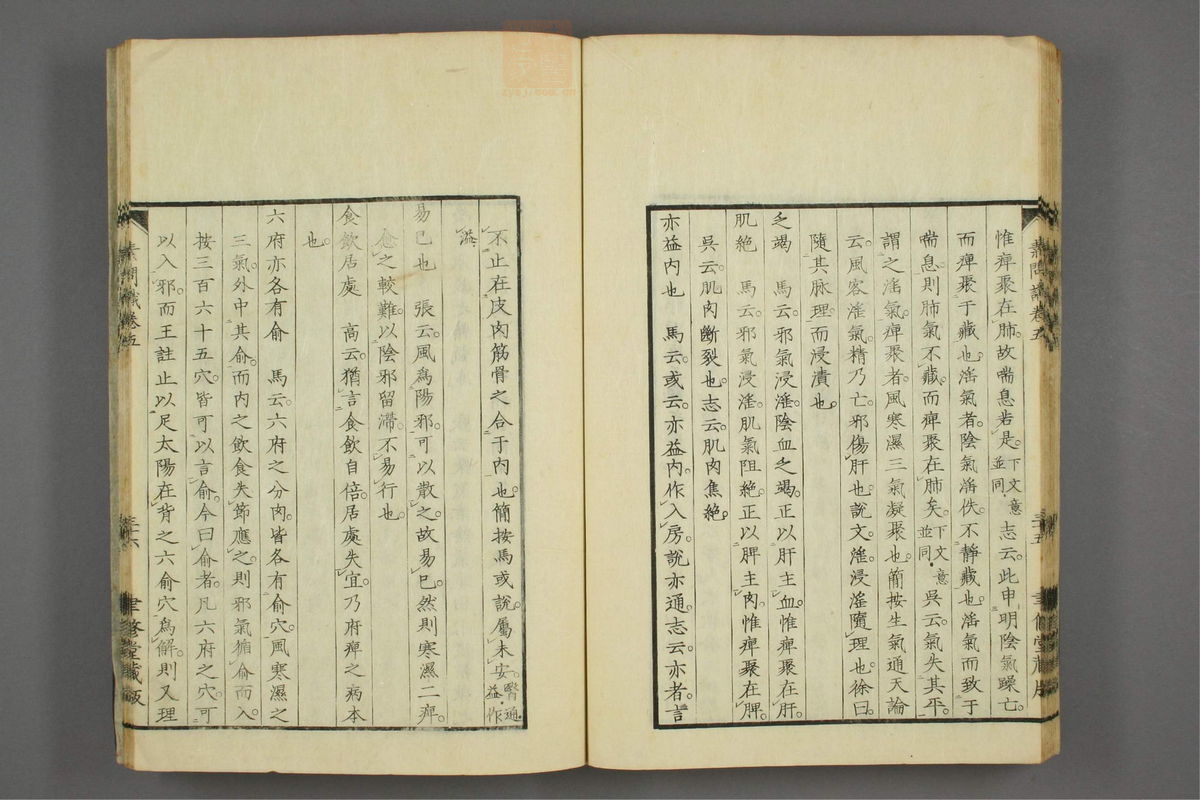 惟痺聚在肺。故喘息若是。下文意並同。志云。此申明陰氣躁亡。
而痺聚于藏也。淫氣者。陰氣淫佚。不靜藏也。淫氣而致于
喘息。則肺氣不藏。而痺聚在肺矣。下文意並同。吳云。氣失其平。
謂之淫氣。痺聚者。風寒濕三氣凝聚也。簡按生氣通天論
云。風客淫氣。精乃亡。邪傷肝也。說文。淫。浸淫隨理也。徐曰
隨其脉理。而浸漬也。
乏竭 馬云。邪氣浸淫。陰血乏竭。正以肝主血。惟痺聚在肝。
肌絕 馬云。邪氣浸淫。肌氣阻絕。正以脾主肉。惟痺聚在脾。
吳云。肌肉斷裂也。志云。肌肉焦絕。
亦益內也 馬云。或云。亦益內。作入房。說亦通。志云。亦者。言
素問識卷五 三十五 聿修堂藏版
不止在皮肉筋骨之合于內也。簡按馬或說。屬未安。醫通。益作
溢。
易已也 張云。風爲陽邪。可以散之。故易已。然則寒濕二痺。
愈之較難。以陰邪留滯。不易行也。
食飲居處 高云。猶言食飲自倍。居處失宜。乃府痺之病本
也。
六府亦各有俞 馬云。六府之分肉。皆各有俞穴。風寒濕之
三氣。外中其俞。而內之飲食失節應之。則邪氣循俞而入。
按三百六十五穴。皆可以言俞。今曰俞者。凡六府之穴。可
以入邪。而王註止以足太陽在背之六俞穴爲解。則又理
素問識卷五 三十六 聿修堂藏版